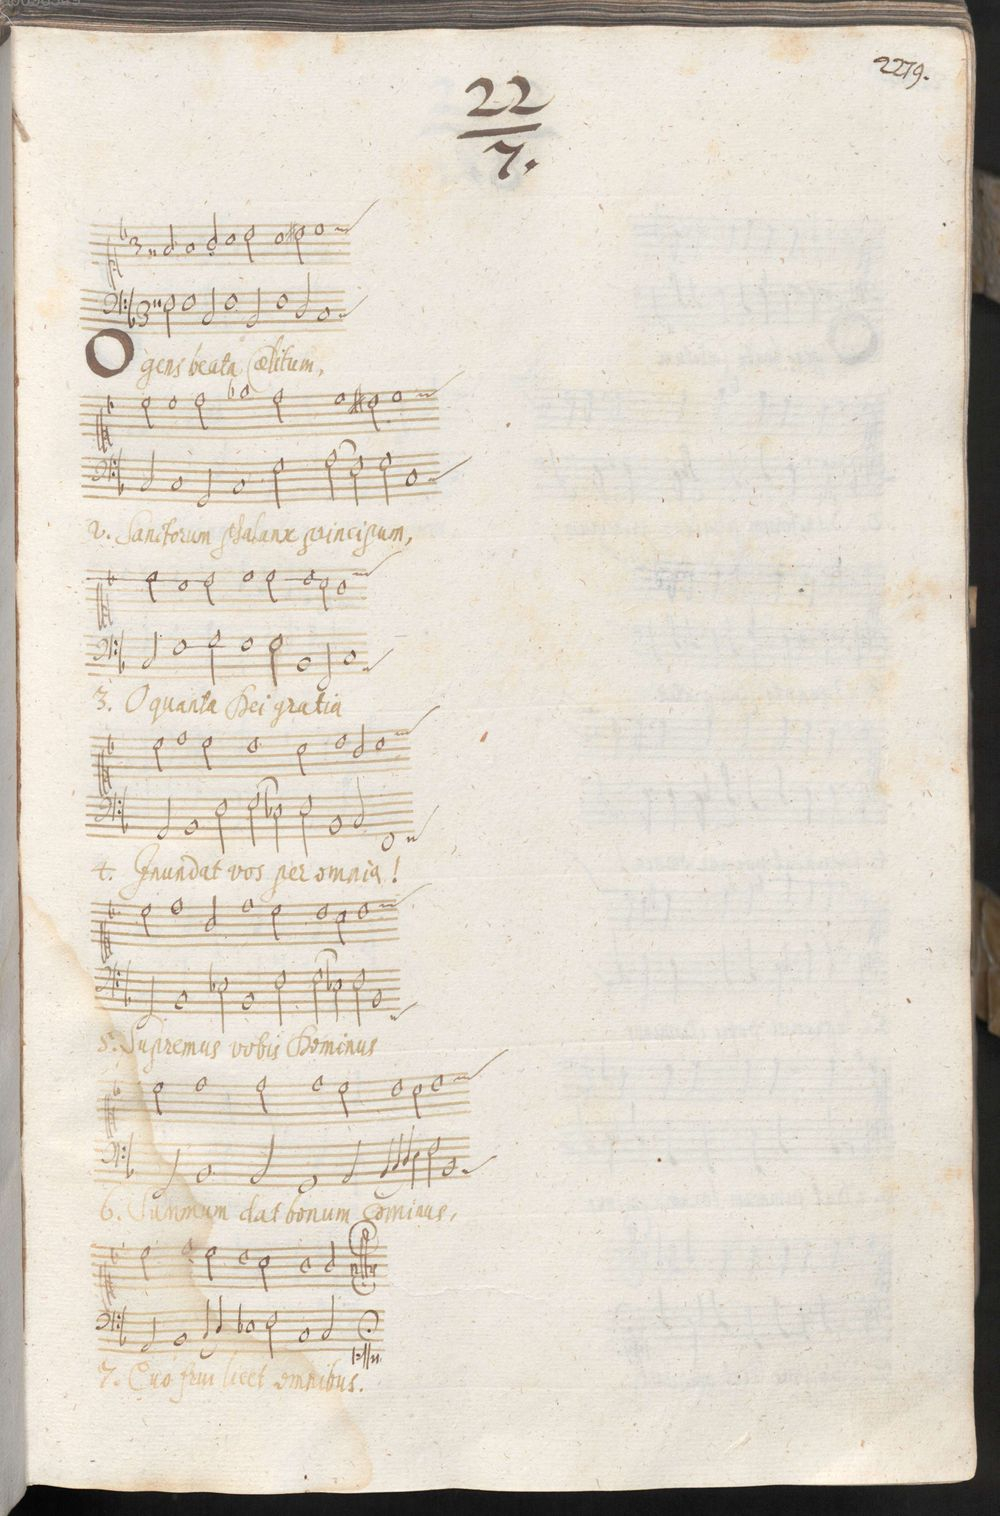 2279.
22
7.
O gens beata Cœlitum,
2. Sanctorum phalanx principum,
3. O quanta Dei gratia
4. Inundat vos per omnia!
5. Supremus vobis Dominus
6. Summum dat bonum Cominus,
7. Quo frui licet omnibus.